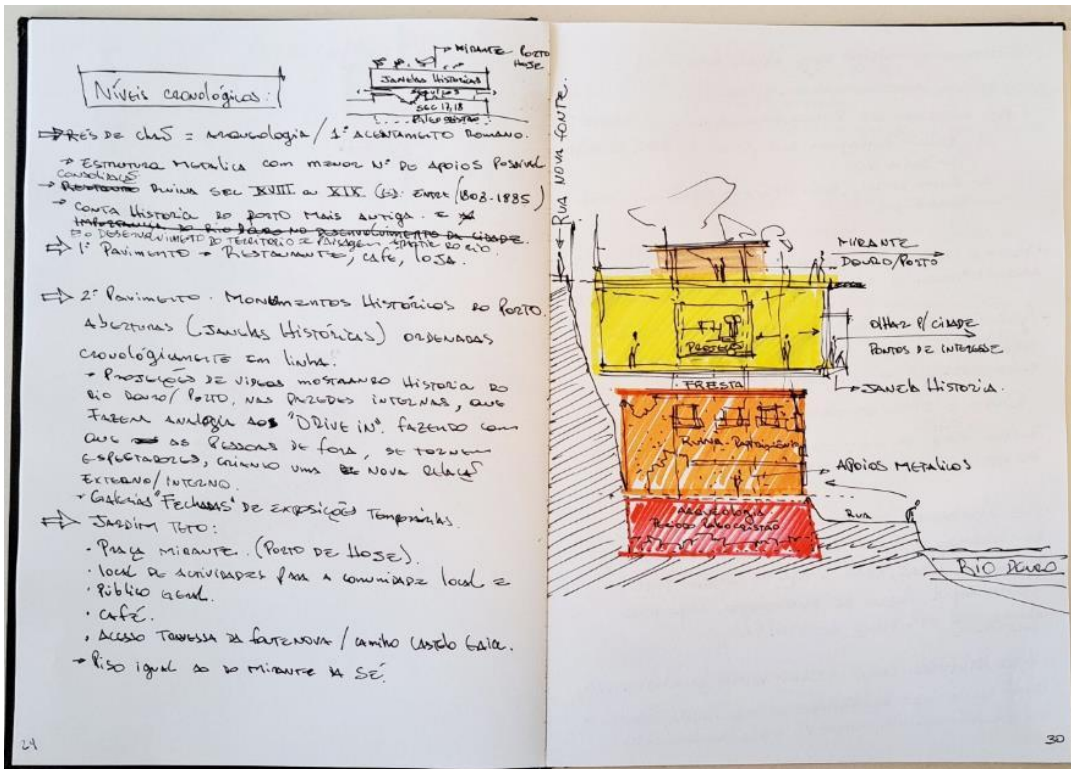 Níveis cronológicos:
MIRANTE PORTO
HOJE
JANELAS HISTÓRICAS
SEC 17,18
PALEOCRISTÃO
RÉS DE CHÃO = ARQUEOLOGIA / 1º ACENTAMENTO ROMANO.
ESTRUTURA METALICA COM MENOR Nº DE APOIOS POSSIVEL
CONSOLIDAÇÃ
RUINA SEC XVIII ou XIX ENTRE (1803-1885)
CONTA HISTORIA DO PORTO MAIS ANTIGA. E
IMPORTANCIA DO RIO DOURO NO DESENVOLVIMENTO DA CIDADE.
DESENVOLVIMENTO DO TERRITÓRIO E PAISAGEM APARTIR DO RIO.
1º PAVIMENTO → RESTAURANTE, CAFE, LOJA.
2º PAVIMENTO. MONUMENTOS HISTÓRICOS DO PORTO.
ABERTURAS (JANELAS HISTÓRICAS) ORDENADAS
CRONOLÓGICAMENTE EM LINHA.
PROJEÇÕES DE VIDEOS MOSTRANDO HISTORIA DO
RIO DOURO/PORTO, NAS PAREDES INTERNAS, QUE
FAZEM ANALOGIA AOS "DRIVE IN". FAZENDO COM
QUE AS PESSOAS DE FORA, SE TORNEM
ESPECTADORES, CRIANDO UMA NOVA RELAÇÃ
EXTERNO/INTERNO.
GALERIAS "FECHADAS" DE EXPOSIÇÕES TEMPORÁRIAS.
JARDIM TETO:
· PRAÇA MIRANTE. (PORTO DE HOJE).
· LOCAL DE ACTIVIDADES PARA A COMUNIDADE LOCAL E
· PÚBLICO GERAL.
· CAFÉ.
· ACESSO TRAVESSA DA FONTE NOVA / CAMINHO CASTELO GAIA.
→ PISO IGUAL AO DO MIRANTE DA SÉ.
24
RUA NOVA FONTE.
MIRANTE
DOURO/PORTO
OLHAR P/ CIDADE
PONTOS DE INTERESSE.
JANELA HISTORIA.
FRESTA
RUINA -
APOIOS METALICOS
ARQUEOLOGIA
PERIODO PALEOCRISTÃO
RUA
RIO DOURO
30